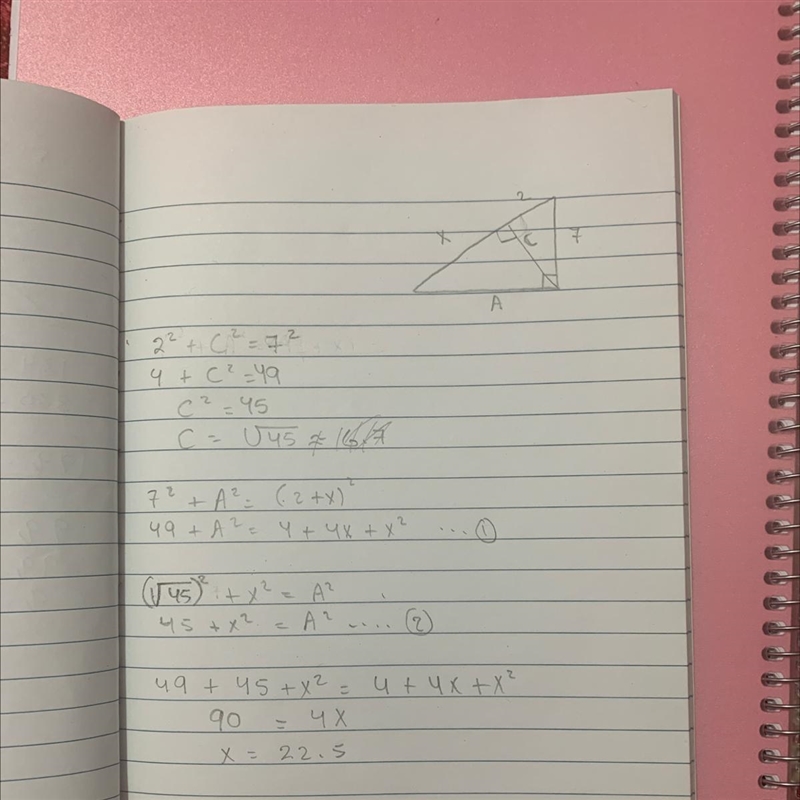 2
x
C
7
A
2² + C² = 7²
4 + C² = 49
C² = 45
C = √45
7² + A² = (2+x)²
49 + A² = 4 + 4x + x² .... ①
(√45)² + x² = A²
45 + x² = A² .... ②
49 + 45 + x² = 4 + 4x + x²
90 = 4x
x = 22.5